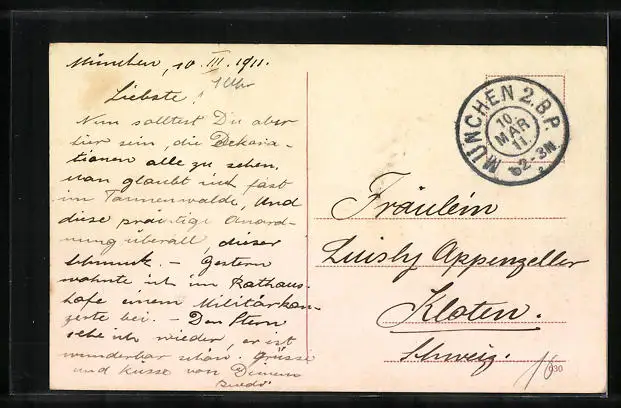 München, 10. III. 1911.
1 Uhr
Liebste!
Nun solltest Du aber
hier sein, die Dekora-
tionen alle zu sehen.
man glaubt sich fast
im Tannenwalde, und
diese prächtige Anord-
nung überall, dieser
Schmuck. - Gestern
wohnte ich im Rathaus-
hofe einem Militärkon-
zerte bei. - Den Stern
sehe ich wieder, er ist
wunderbar schön. Grüsse
und Küsse von Deinem
MÜNCHEN 2.B.P.
10.
MÄR
11.
2-3N.
Fräulein
Luisly Appenzeller
Kloten.
Schweiz.
030